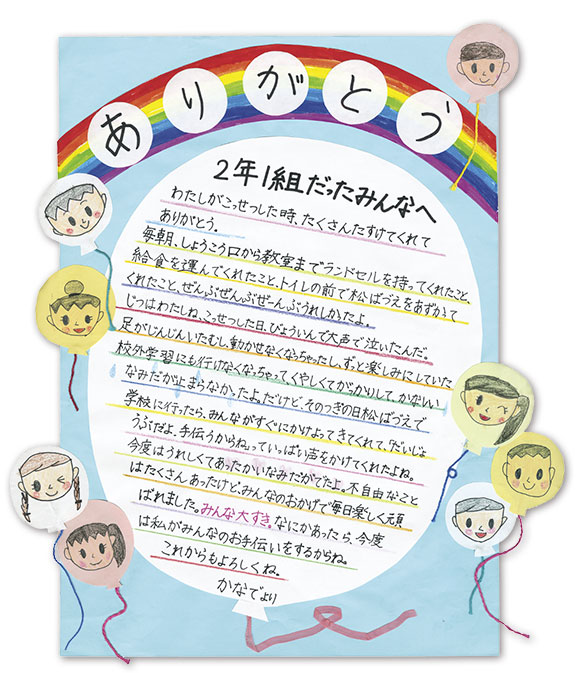 ありがとう
2年1組だったみんなへ
わたしがこっせつした時、たくさんたすけてくれて
ありがとう。
毎朝、しょうこう口から教室までランドセルを持ってくれたこと、
給食を運んでくれたこと、トイレの前で松ばづえをあずかって
くれたこと、ぜんぶぜんぶぜーんぶうれしかたよ。
じつはわたしね、こっせつした日、びょういんで大声で泣いたんだ。
足がじんじんいたむし、動かせなくなっちゃったし、ずっと楽しみにしていた
校外学習にも行けなくなっちゃって、くやしくてがっかりして、かなしい
なみだが止まらなかったよ。だけど、そのつぎの日松ばづえで
学校に行ったら、みんながすぐにかけよってきてくれて、「だいじょ
うぶだよ。手伝うからね。」っていっぱい声をかけてくれたよね。
今度はうれしくてあったかいなみだがでたよ。不自由なこと
はたくさんあったけど、みんなのおかげで毎日楽しく頑
ばれました。みんな大すき。なにかあったら、今度
は私がみんなのお手伝いをするからね。
これからもよろしくね。
かなでより